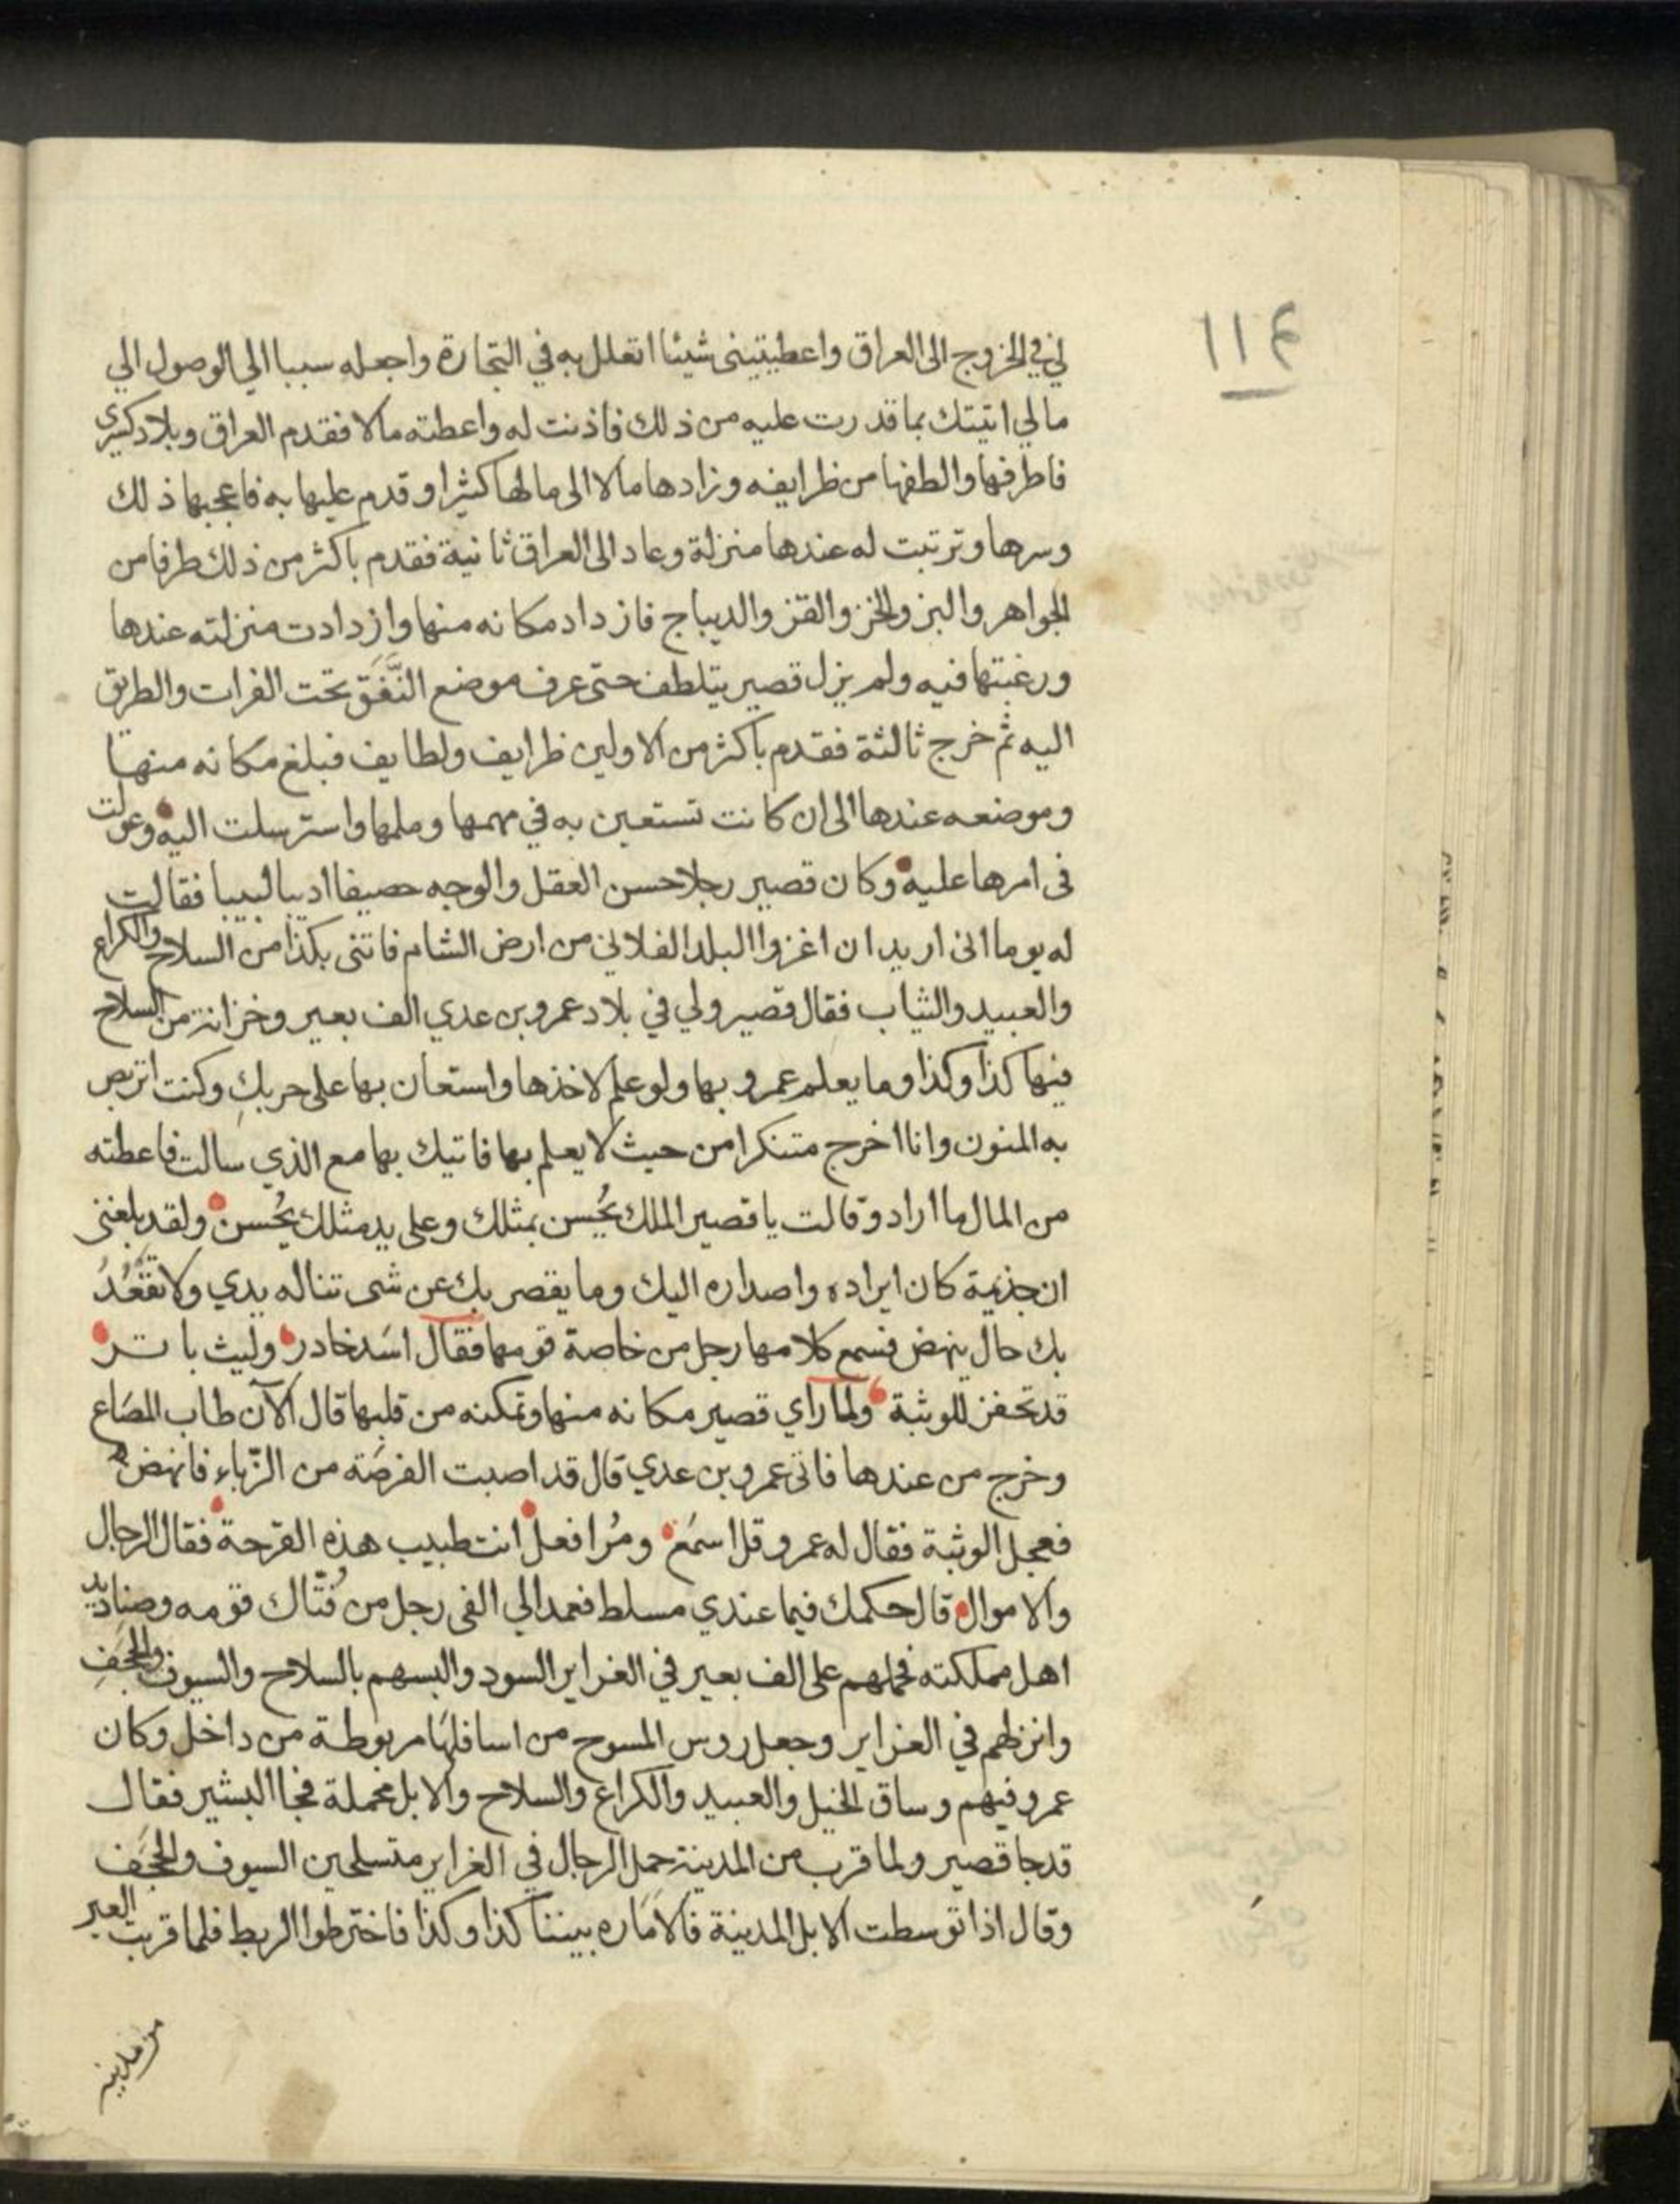 ١١٤
لي في الخروج الى العراق واعطيتينى شيئا اتعلل به في التجارة واجعله سببا الي الوصول الي
مالي اتيتك بما قدرت عليه من ذلك فاذنت له واعطته مالا فقدم العراق وبلاد كسرى
فاطرفها والطفها من ظرايفه وزادها مالا الى مالها كثيرا وقدم عليها به فاعجبها ذلك
وسرها وترتبت له عندها منزلة وعاد الى العراق ثانية فقدم باكثر من ذلك طرفا من
الجواهر والبز والخز والقز والديباج فازداد مكانه منها وازدادت منزلته عندها
ورغبتها فيه ولم يزل قصير يتلطف حتى عرف موضع النَّفَق تحت الفرات والطريق
اليه ثم خرج ثالثة فقدم باكثر من الاولين ظرايف ولطايف فبلغ مكانه منها
وموضعه عندها الى ان كانت تستعين به في مهمها وملمها واسترسلت اليه وعولت
فى امرها عليه وكان قصير رجلا حسن العقل والوجه حصيفا اديبا لبيبا فقالت
له يوما انى اريد ان اغزوا البلد الفلاني من ارض الشام فاتنى بكذا من السلاح والكراع
والعبيد والثياب فقال قصير ولي في بلاد عمرو بن عدي الف بعير وخزانة من السلاح
فيها كذا وكذا وما يعلم عمرو بها ولو علم لاخذها واستعان بها على حربكِ وكنت اتربص
به المنون وانا اخرج متنكرا من حيث لا يعلم بها فاتيك بها مع الذي سالت فاعطته
من المال ما اراد وقالت يا قصير الملك يحُسن بمثلك وعلى يد مثلك يحُسن ولقد بلغنى
ان جذيمة كان ايراده واصداره اليك وما يقصر بك عن شى تناله يدي ولا تقعُدُ
بك حال ينهض فسمع كلامها رجل من خاصة قومها فقال اسَد خادر وليث باتر
قد تحفز للوثبة ولما راي قصير مكانه منها وتمكنه من قلبها قال الآن طاب المصَاع
وخرج من عندها فاتى عمرو بن عدي قال قد اصبت الفرصَة من الزّباء فانهض
فعجل الوثبة فقال له عمرو قل اسمَع ومُر افعل انت طبيب هذه القرحة فقال الرجال
والاموال قال حكمك فيما عندي مسلط فعمد الي الفى رجل من فُتّاك قومه وصناديد
اهل مملكته فحملهم على الف بعير في الغراير السود والبسهم بالسلاح والسيوف والحجَف
وانزلهم في الغراير وجعل روس المسوح من اسافلهَا مربوطة من داخل وكان
عمرو فيهم وساق الخيل والعبيد والكراع والسلاح والابل محملة فجا البشير فقال
قد جا قصير ولما قرب من المدينة حمل الرجال في الغراير متسلحين السيوف والحجَف
وقال اذا توسطت الابل المدينة فالامَاره بيننا كذا وكذا فاخترطوا الربط فلما قربت العير
من مدينة